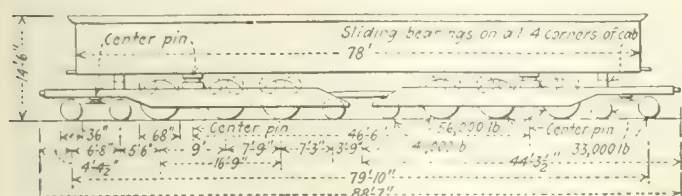 Center pin
Sliding bearings on all 4 corners of cab
78'
14'-6"
36" 68" Center pin 46'-6 56,000 lb Center pin
6'-8" 5'6" 9' 7'-9" 7'-3" 3'-9" 33,000 lb
4'-4½" 16'-9" 44'-3½"
79'-10"
88'-7"